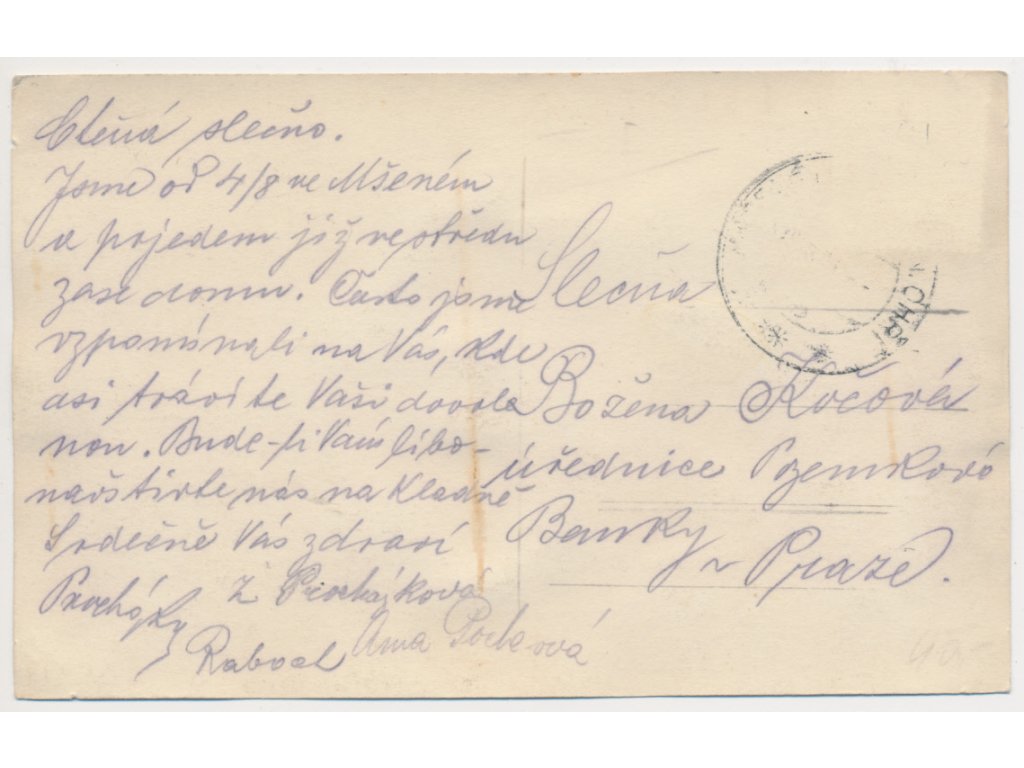 Ctěná slečno.
Jsme od 4/8 ve Mšeném
a pojedem již ve středu
zase domu. Často jsme
vzpomínali na Vás, kde
asi trávíte Vaši dovole
nou. Bude-li Vám libo-
navštivte nás na Kladně
Srdečně Vás zdraví
Z Procházková
Anna
Slečna
Božena Kočová
úřednice Pozemkové
Banky
v Praze.